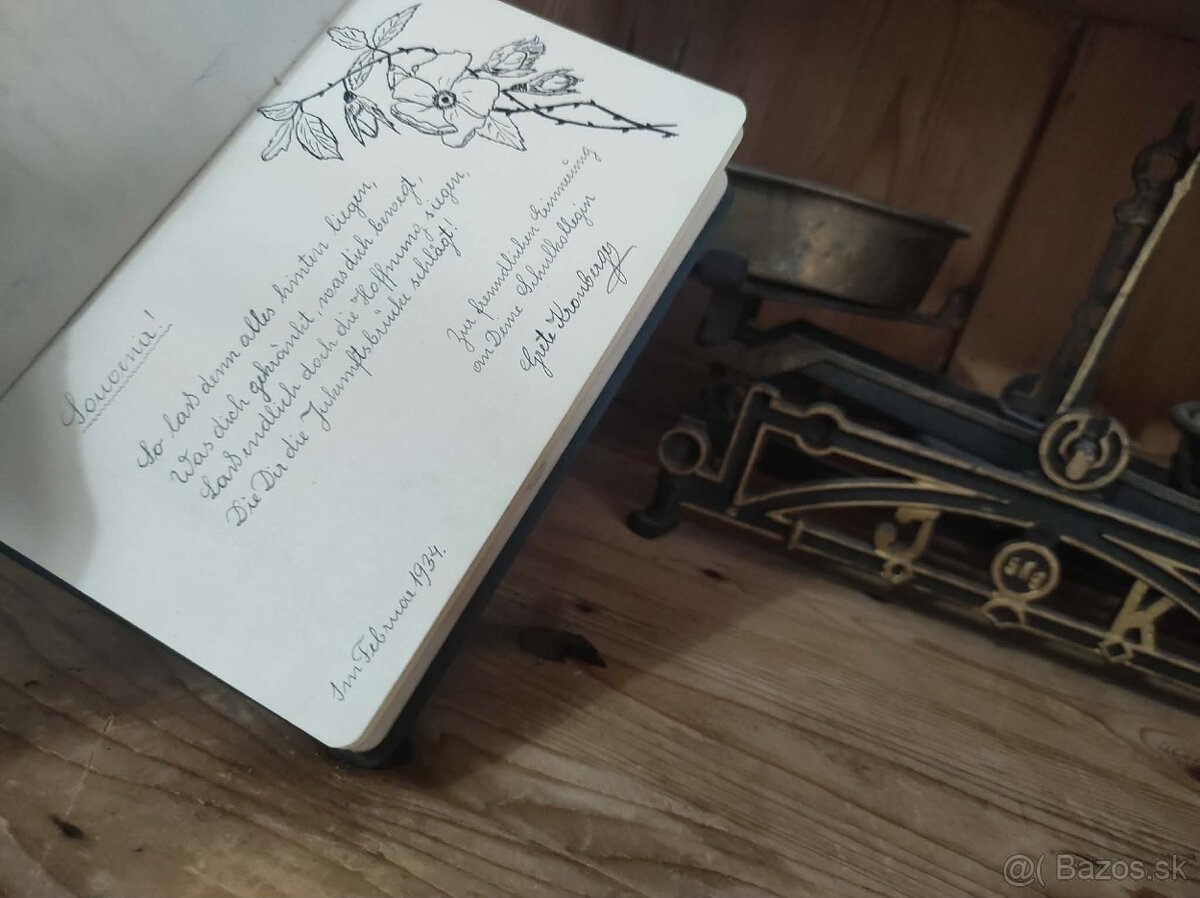 Souvenir!
So lass denn alles hinten liegen,
Was dich gekränkt, was dich bewegt,
Lass endlich doch die Hoffnung siegen,
Die Dir die Zukunftsbrücke schlägt!
Zur freundlichen Erinnerung
an Deine Schulkollegin
Grete Kronberg
Im Februar 1934.
J
5 Kg
K
@( Bazos.sk